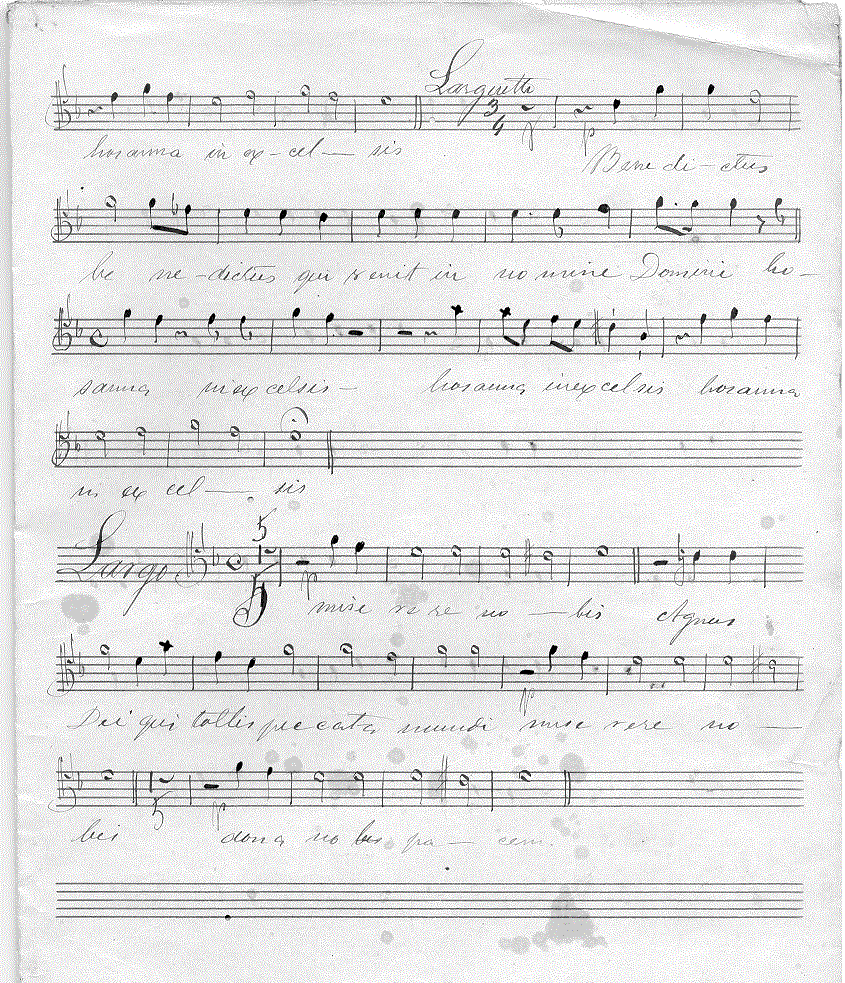 Larghetto
3
4
p
hosanna in ex - cel - sis Bene di - ctus
be ne - dictus qui venit in no mine Domini ho -
sanna in excelsis - hosanna in excelsis hosanna
in ex cel - sis
5
Largo
p
5
mise re re no - bis Agnus
Dei qui tollis peccata mundi mise rere no -
p
5
p
bis dona no bis pa - cem.